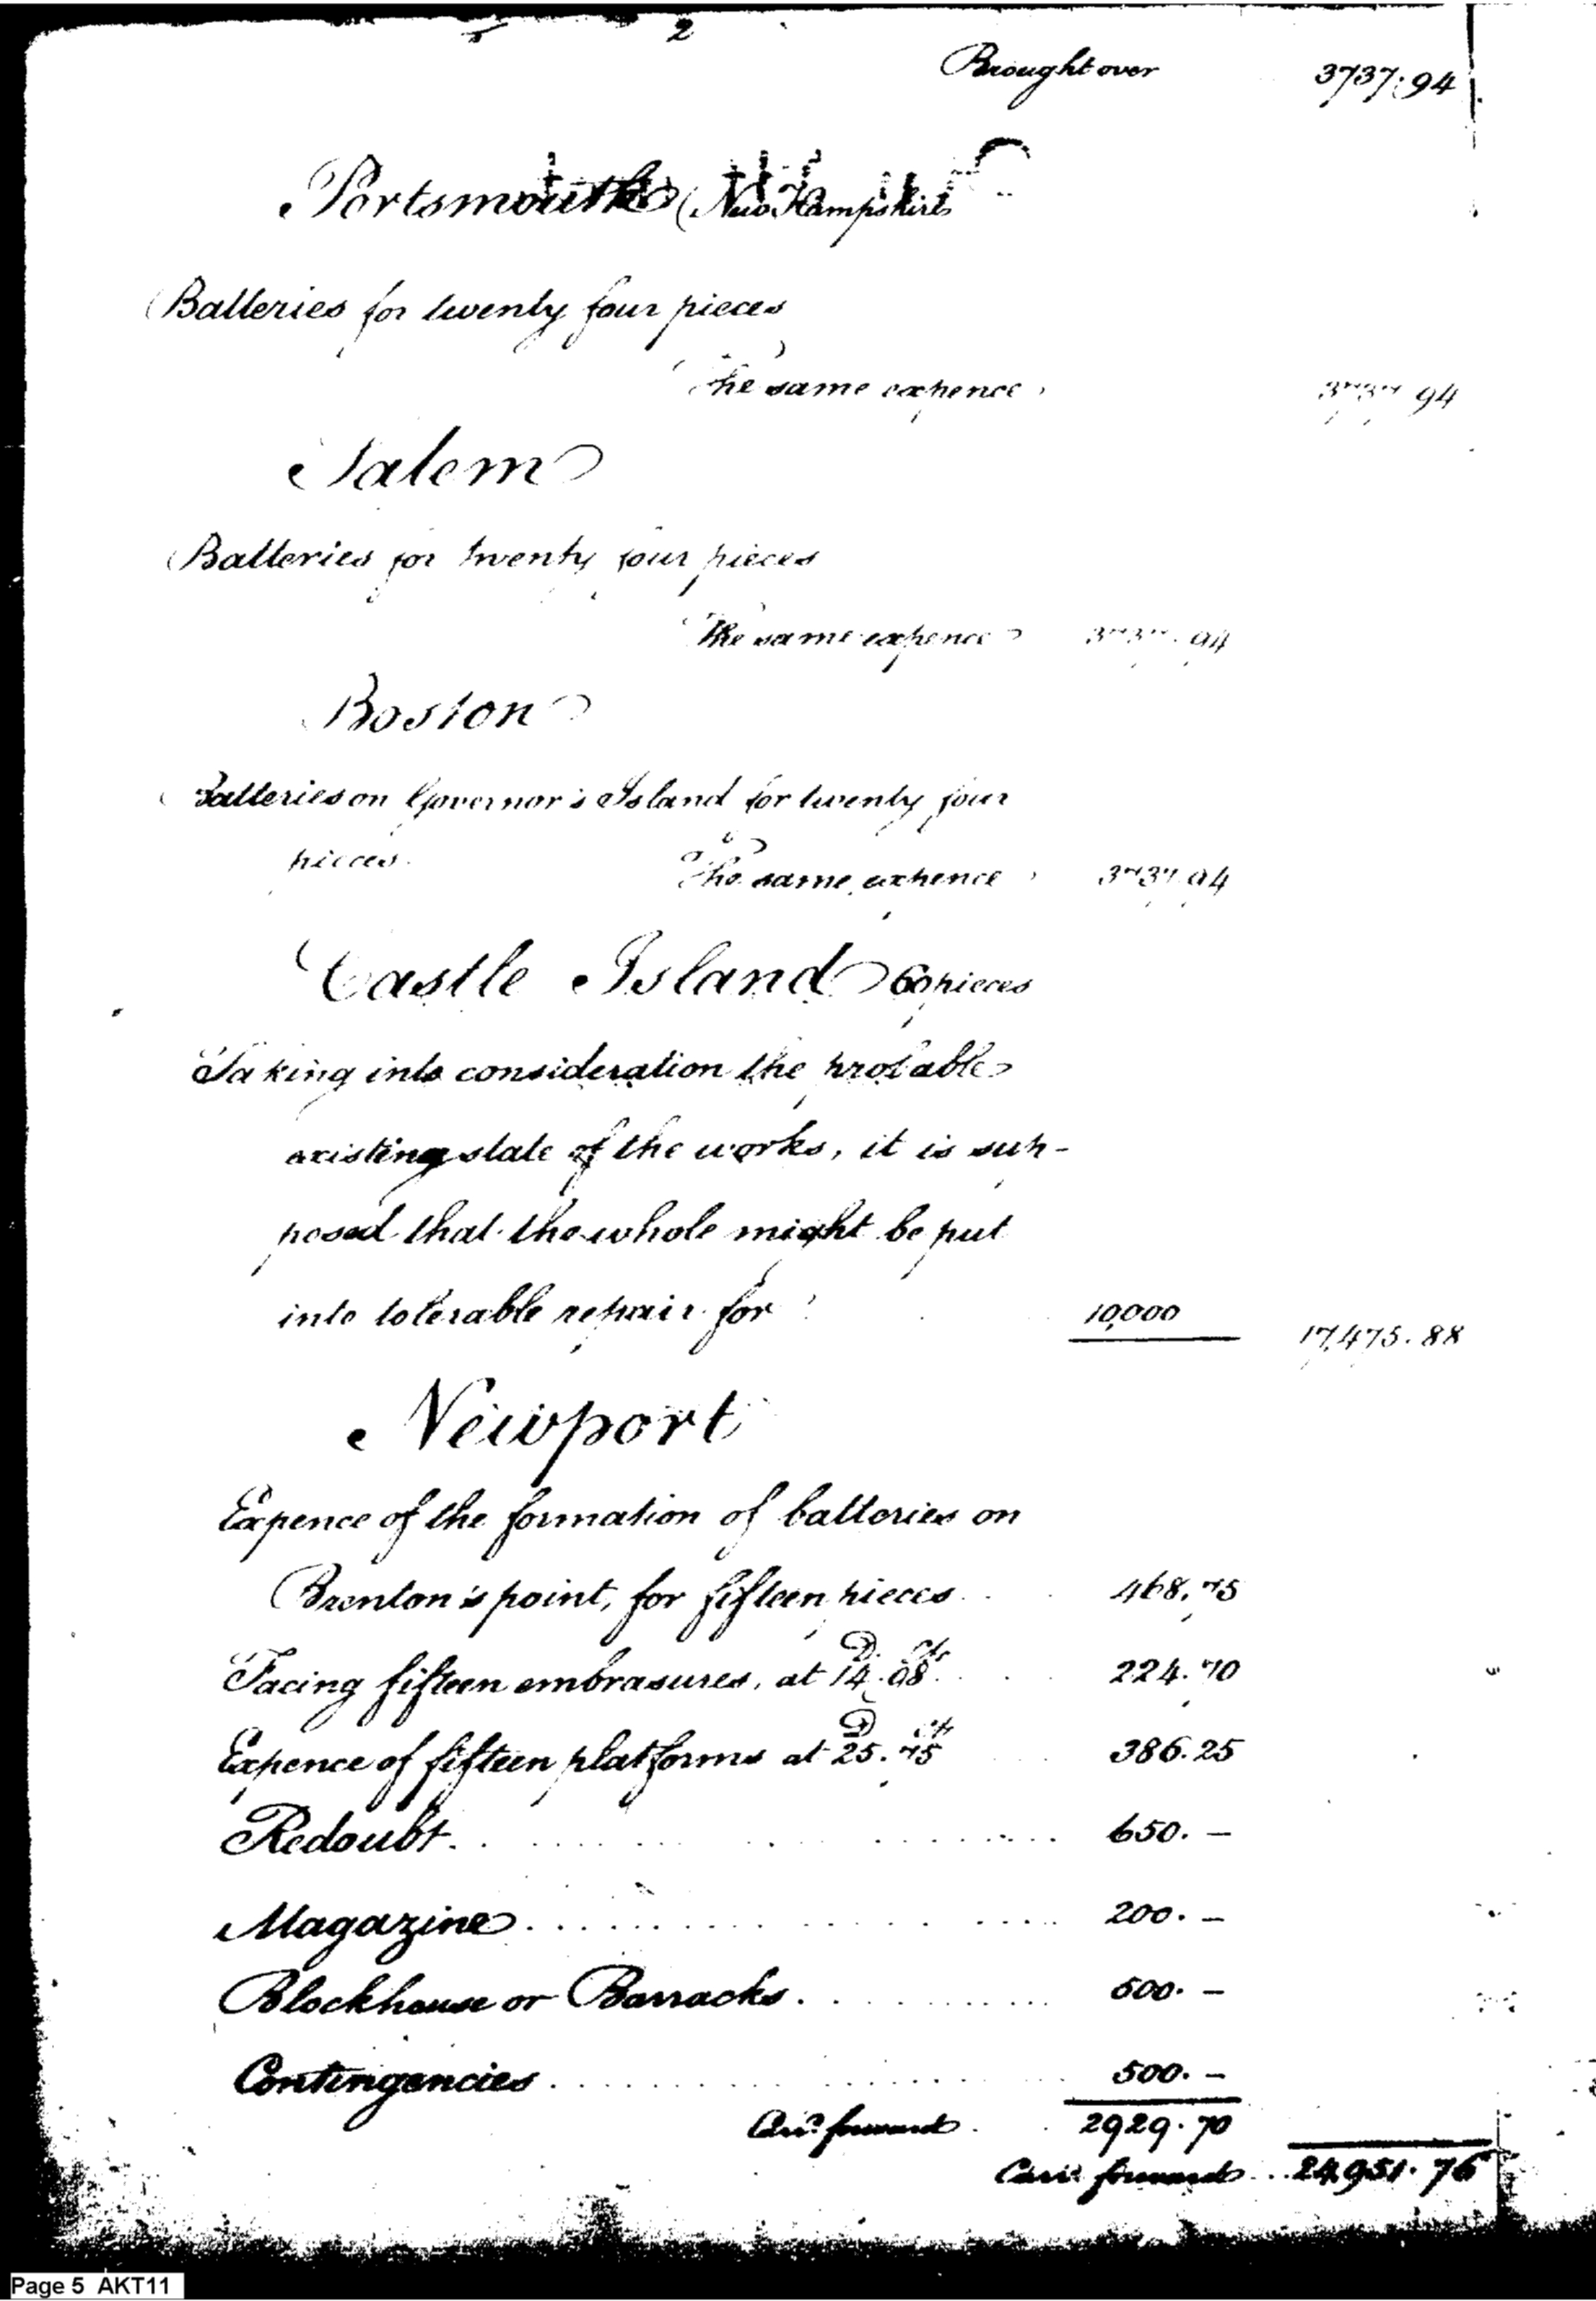 2
Brought over 3737.94
Portsmouth (New Hampshire
Batteries for twenty four pieces
The same expence 3737.94
Salem
Batteries for twenty four pieces
The same expence 3737.94
Boston
Batteries on Governor's Island for twenty four
pieces. The same expence 3737.94
Castle Island 60 pieces
Taking into consideration the probable
existing state of the works, it is sup-
posed that the whole might be put
into tolerable repair for 10,000
17,475.88
Newport
Expence of the formation of batteries on
Brenton's point, for fifteen pieces 468.75
Facing fifteen embrasures, at 14.98 224.70
Expence of fifteen platforms at 25.75 386.25
Redoubt 650.—
Magazine 200.—
Blockhouse or Barracks 500.—
Contingencies 500.—
Carrd. forward 2929.70
Carrd. forward 24,951.76
Page 5 AKT11